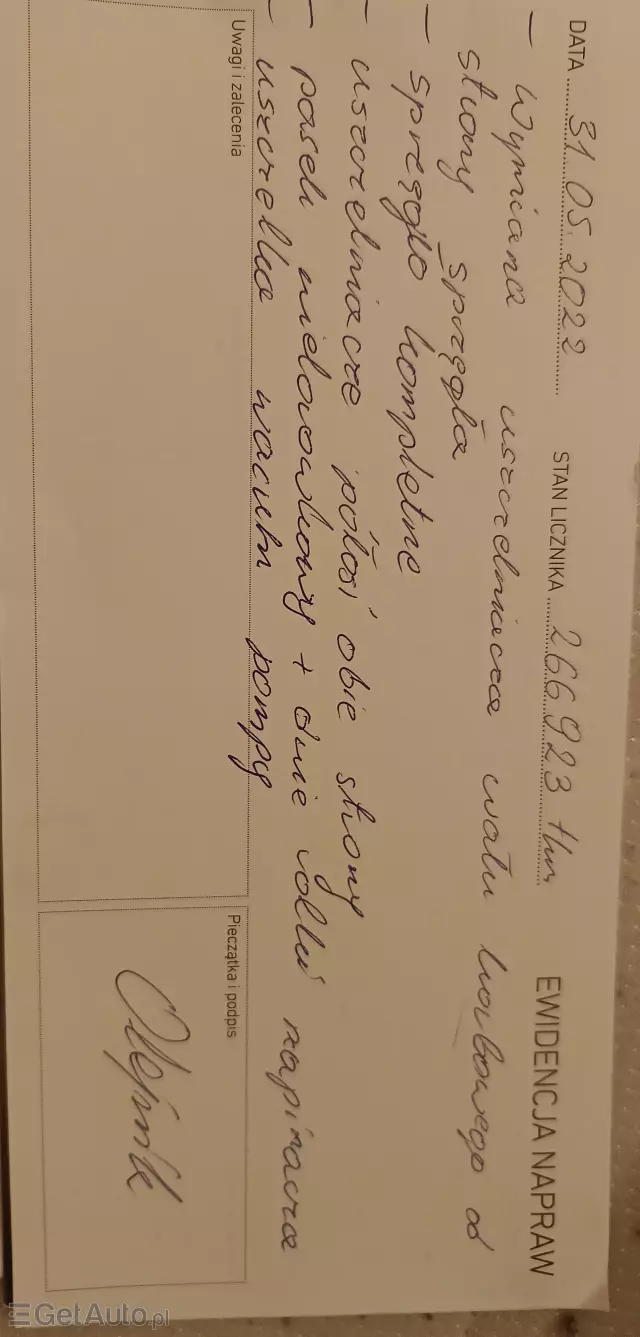 DATA 31 05.2022 STAN LICZNIKA 266923 tkm EWIDENCJA NAPRAW
– Wymiana uszczelniacza wału korbowego od
strony sprzęgła
– sprzęgło kompletne
– uszczelniacze półosi obie strony
– pasek wielorowkowy + dwie rolki napinacza
– uszczelka wacum pompy
Uwagi i zalecenia Pieczątka i podpis
GetAuto.pl